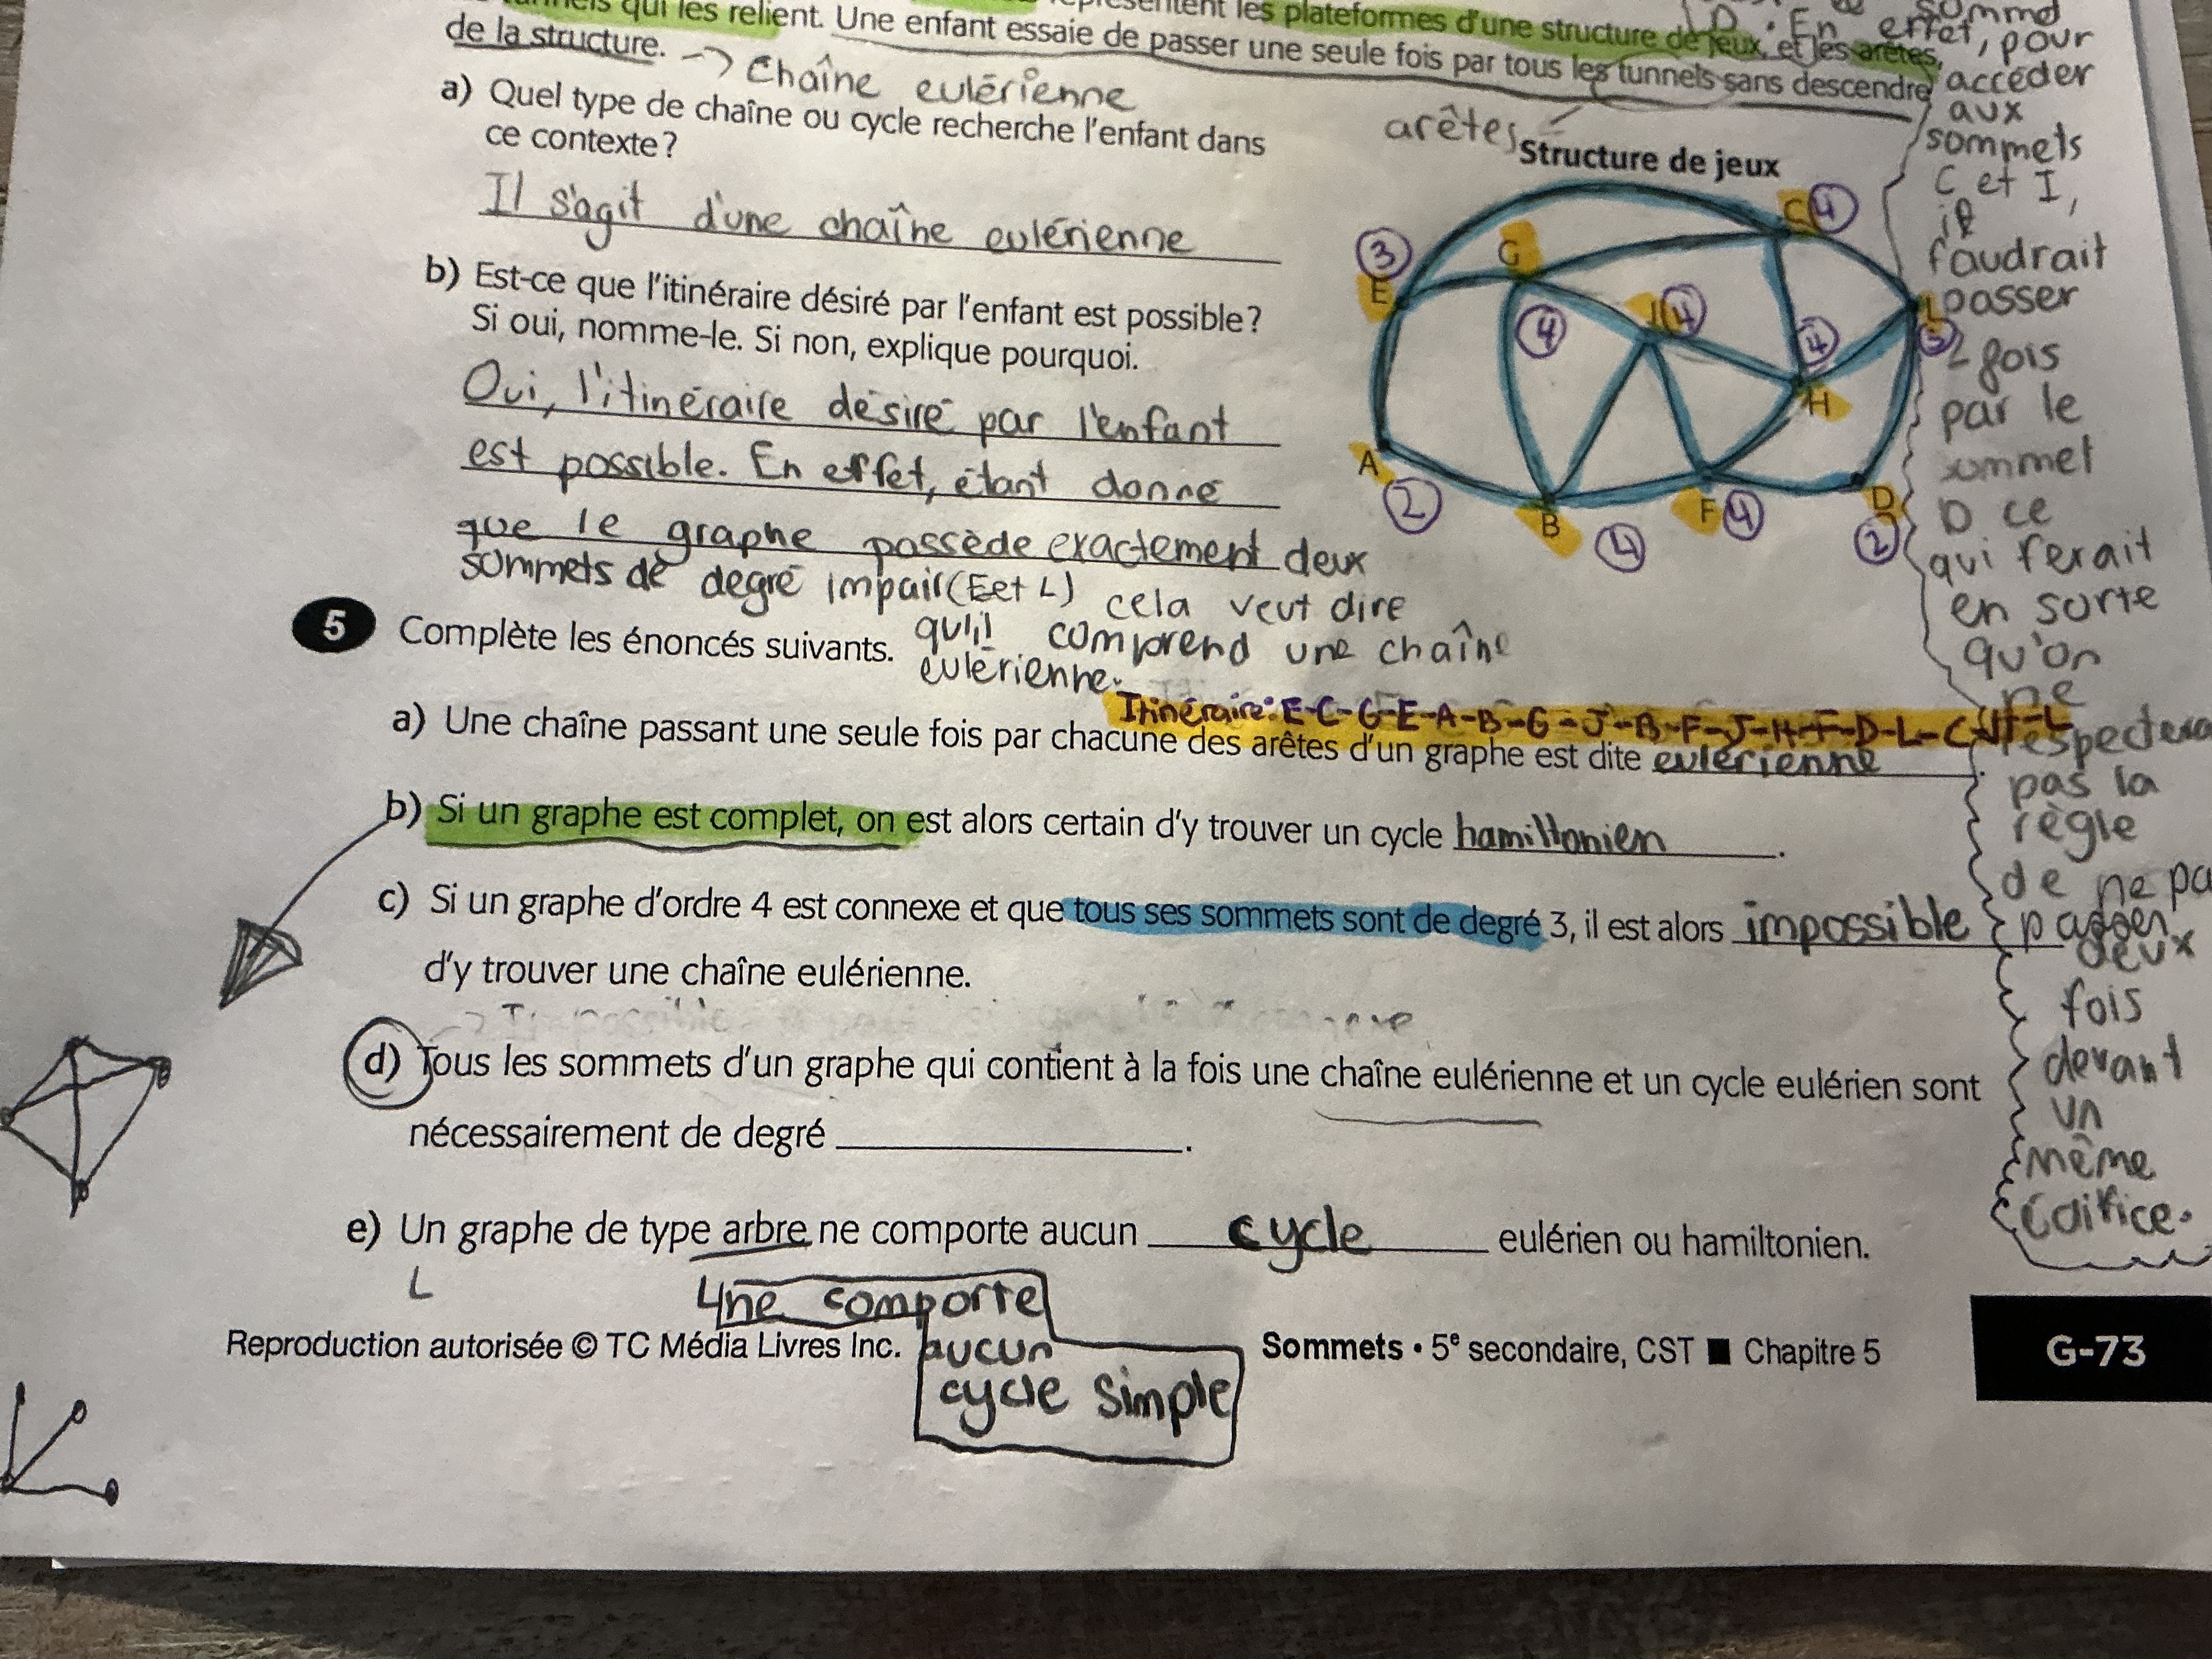 qui les relient. Une enfant essaie de passer une seule fois par tous les tunnels sans descendre
les plateformes d'une structure de jeux, et les arêtes,
de la structure. → Chaîne eulérienne
a) Quel type de chaîne ou cycle recherche l'enfant dans
ce contexte?
Il s'agit d'une chaîne eulérienne
b) Est-ce que l'itinéraire désiré par l'enfant est possible?
Si oui, nomme-le. Si non, explique pourquoi.
Oui, l'itinéraire désiré par l'enfant
est possible. En effet, étant donné
que le graphe possède exactement deux
sommets de degré impair (E et L) cela veut dire
qu'il comprend une chaîne
eulérienne.
arêtes
Structure de jeux
C 4
3 G
E J 4
4 4
L 3
H
A
2 B F 4 D
4 2
D. En effet, pour
accéder
aux
sommets
C et I,
il
faudrait
passer
2 fois
par le
sommet
D ce
qui ferait
en sorte
qu'on
ne
respectera
pas la
règle
de ne pa
passer
deux
fois
devant
un
même
édifice.
5 Complète les énoncés suivants.
Itinéraire: E-C-G-E-A-B-G-J-B-F-J-H-F-D-L-C-H-L
a) Une chaîne passant une seule fois par chacune des arêtes d'un graphe est dite eulérienne.
b) Si un graphe est complet, on est alors certain d'y trouver un cycle hamiltonien.
c) Si un graphe d'ordre 4 est connexe et que tous ses sommets sont de degré 3, il est alors impossible
d'y trouver une chaîne eulérienne.
d) Tous les sommets d'un graphe qui contient à la fois une chaîne eulérienne et un cycle eulérien sont
nécessairement de degré ____.
e) Un graphe de type arbre ne comporte aucun cycle eulérien ou hamiltonien.
ne comporte
aucun
cycle simple
Reproduction autorisée © TC Média Livres Inc.
Sommets • 5e secondaire, CST ■ Chapitre 5
G-73